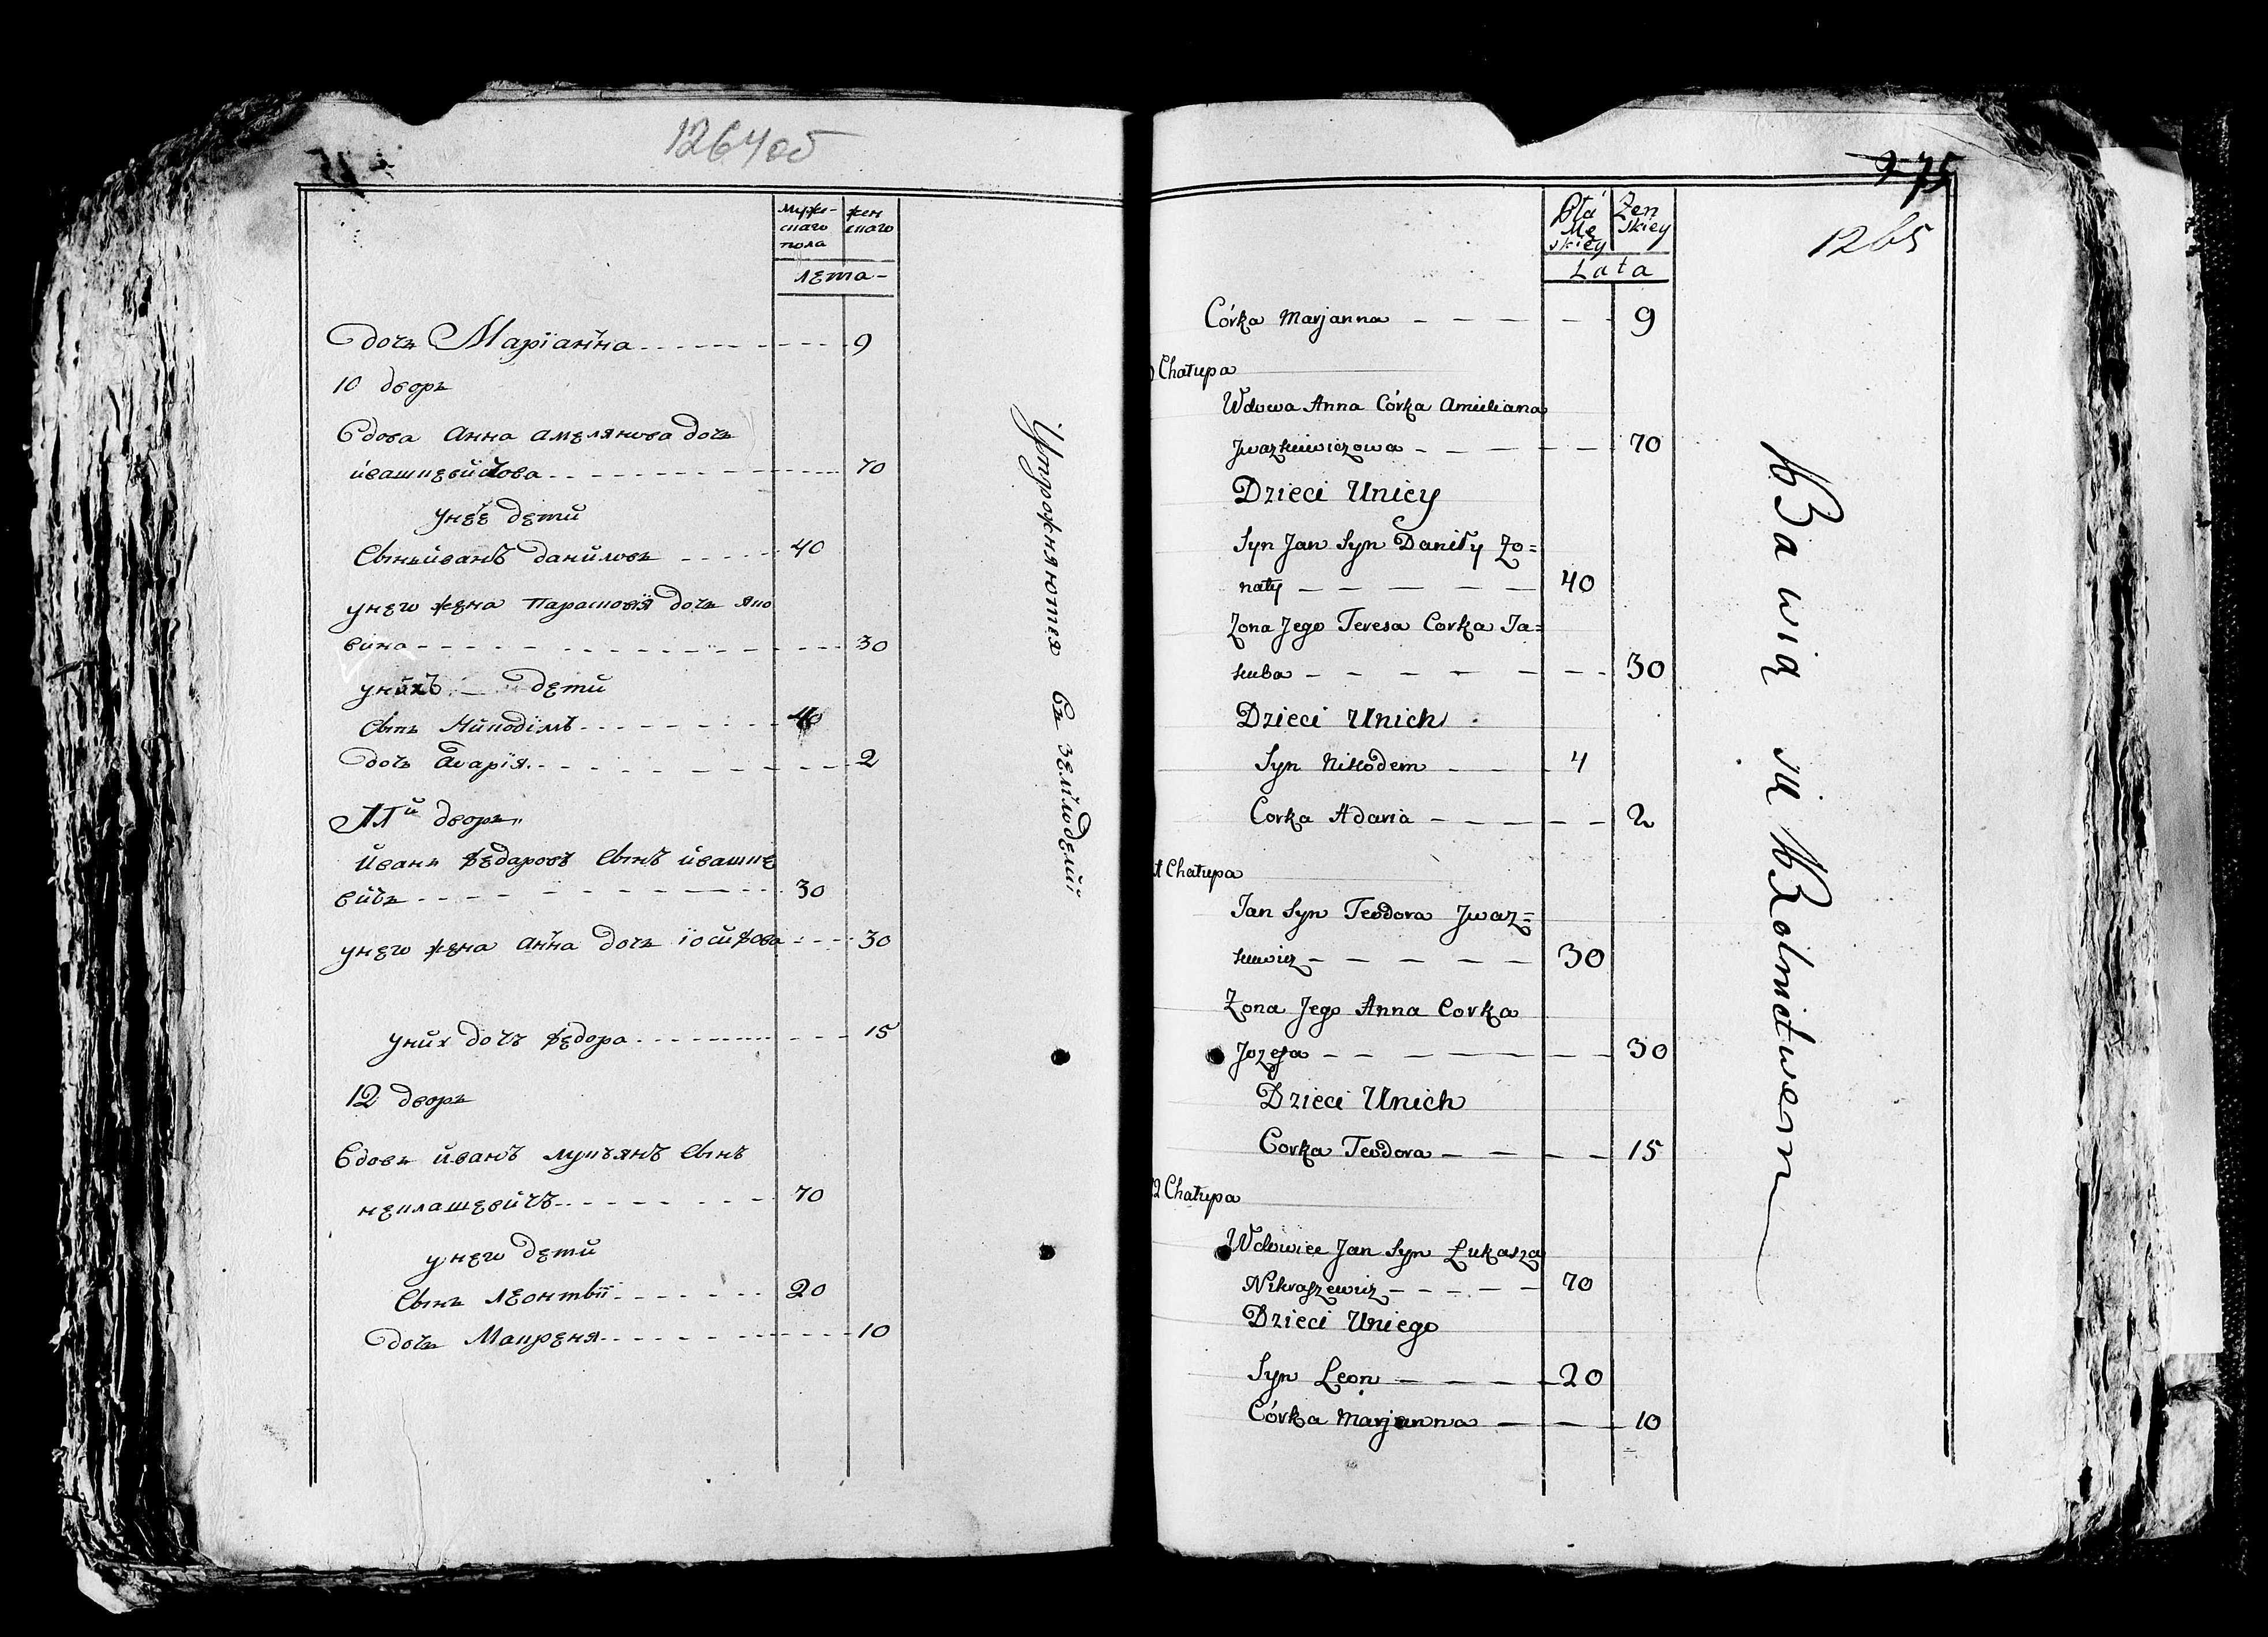 1264 об
мужескаго пола
женскаго
лета
дочь Маріанна 9
10 дворъ
Вдова Анна Амелянова дочь
ивашкевичова 70
у нее дети
Сынъ иванъ даниловъ 40
у него жена Парасковія дочь яко
вина 30
у нихъ дети
Сынъ Никодімъ 4
дочь Агарія 2
11й дворъ
Иванъ Федаровъ Сынъ ивашке
вичь 30
у него жена Анна дочь іосифова 30
у них дочъ Федора 15
12 дворъ
Вдовъ иванъ лукъянъ Сынъ
неклашевичъ 70
у него дети
Сынъ леонтвіі 20
дочь Мокреня 10
Упрожняются въ земліоделиі
275
1265
Płci Męskiey
Żenskiey
Lata
Córka Marjanna 9
Chałupa
Wdowa Anna Córka Amiliana
Jwazkiewiczowa 70
Dzieci Uniey
Syn Jan Syn Daniły Żo=
naty 40
Żona Jego Teresa Corka Ja=
kuba 30
Dzieci Unich
Syn Nikodem 4
Corka Adaria 2
1 Chałupa
Jan Syn Teodora Jwaz=
kiewicz 30
Żona Jego Anna Corka
Jozefa 30
Dzieci Unich
Corka Teodora 15
12 Chałupa
Wdowiec Jan Syn Łukasza
Nikraszewicz 70
Dzieci Uniego
Syn Leon 20
Córka Marjanna 10
Bawią się Rolnictwem